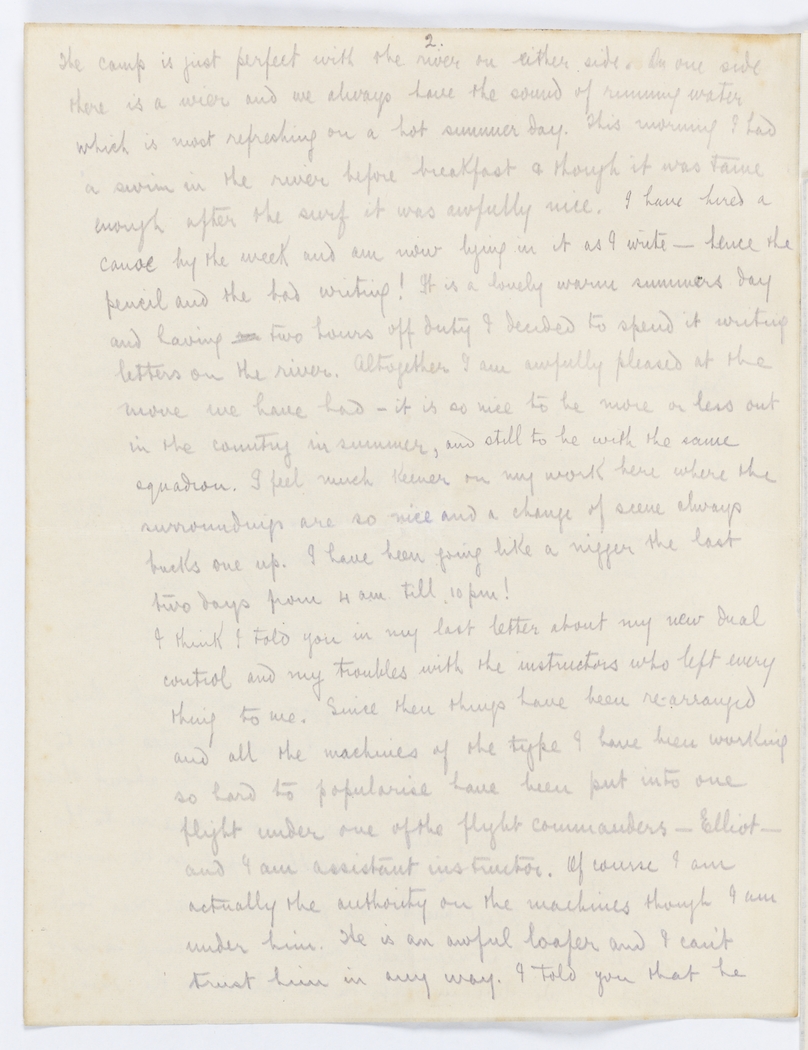 2.
The camp is just perfect with the river on either side. On one side
there is a wier and we always have the sound of running water
which is most refreshing on a hot summer day. This morning I had
a swim in the river before breakfast & though it was tame
enough after the surf it was awfully nice. I have hired a
canoe by the week and am now lying in it as I write – hence the
pencil and the bad writing! It is a lovely warm summers day
and having two hours off duty I decided to spend it writing
letters on the river. Altogether I am awfully pleased at the
move we have had – it is so nice to be more or less out
in the country in summer, and still to be with the same
squadron. I feel much keener on my work here where the
surroundings are so nice and a change of scene always
bucks one up. I have been going like a nigger the last
two days from 4 am till 10 pm!
I think I told you in my last letter about my new dual
control and my troubles with the instructors who left every
thing to me. Since then things have been re-arranged
and all the machines of the type I have been working
so hard to popularise have been put into one
flight under one of the flight commanders – Elliot –
and I am assistant instructor. Of course I am
actually the authority on the machines though I am
under him. He is an awful loafer and I can't
trust him in any way. I told you that he